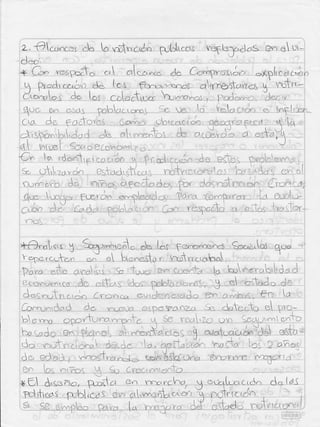 2. Alcances de la nutrición públicas reflejados en el vi-
deo
* Con respecto al alcance de Comprasión explicación
y Predicción de los fenomenos alimentarios y nutri-
cionales de los colectivos humanos, Podemos decir
que en esas poblaciones se ve la relación e influen
cia de factores como ubicación geografica y la
disponibilidad de alimentos de acuerdo a esta, y
al nivel Socioeconomico.
En la identificación y Predicción de estos problemas
se utilizaron estadísticas nutricionales basadas en el
numero de niños afectados por desnutrición Cronica,
que luego fueron empleados Para comparar la evalu-
ción de cada población Con respecto a estos trastor-
nos.
* Analisis y Seguimiento de los Fenomenos Sociales que
repercuten en el bienestar nutricional.
Para este analisis Se tuvo en cuenta la vulnerabilidad
economica de estas dos poblaciones, y el estado de
desnutrición Cronica evidenciado en ambas. En la
Comunidad de nueva esperanza Se detecto el pro-
blema oportunamente y se realizo un Seguimiento
basado en planes alimentarios y evaluación del esta
do nutricional desde la gestación hasta los 2 años
de edad, mostrando una enorme mejoria
en los niños y Su crecimiento.
* El diseño, puesta en marcha, y evaluación de las
Politicas publicas en alimentación y nutrición
Si se empleo para la mejora del estado nutricional